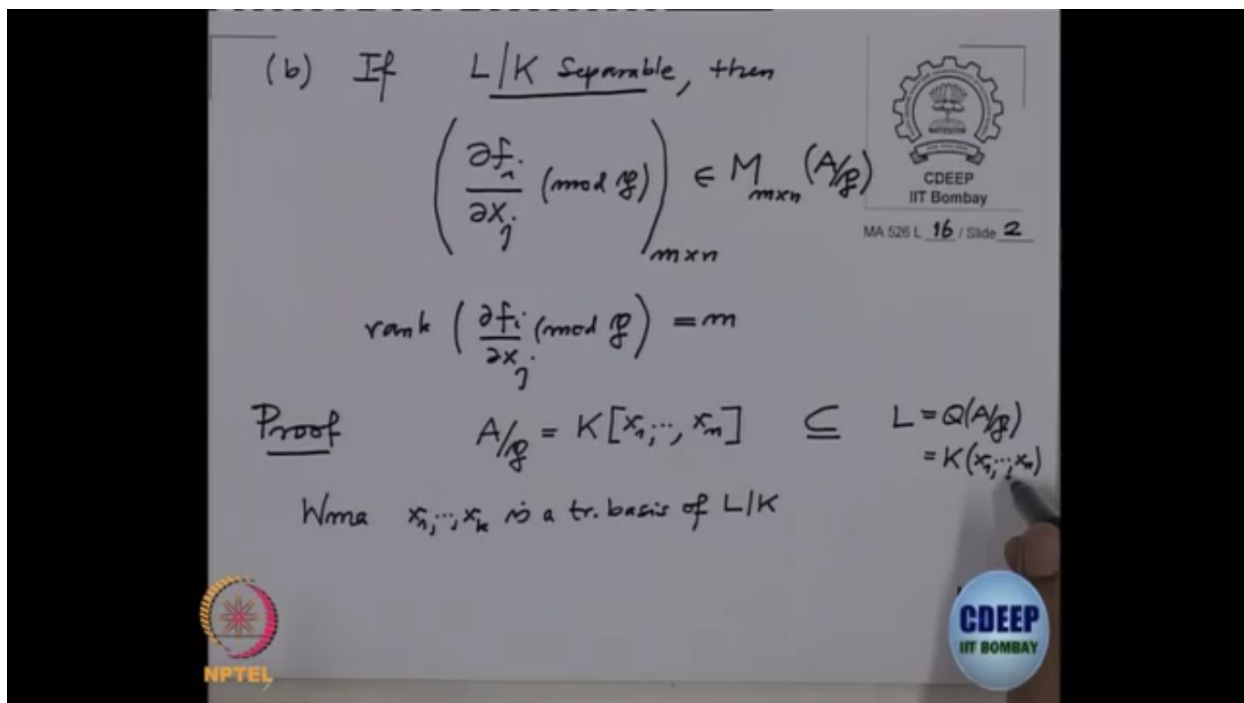 (b) If L/K Separable, then
(∂fᵢ/∂Xⱼ (mod 𝔭))ₘₓₙ ∈ Mₘₓₙ (A/𝔭)
CDEEP
IIT Bombay
MA 526 L 16 / Slide 2
rank (∂fᵢ/∂xⱼ (mod 𝔭)) = m
Proof A/𝔭 = K[x₁,⋯, xₙ] ⊆ L = Q(A/𝔭)
= K(x₁,⋯,xₙ)
Wma x₁,⋯,xₖ is a tr. basis of L/K
NPTEL
CDEEP
IIT BOMBAY